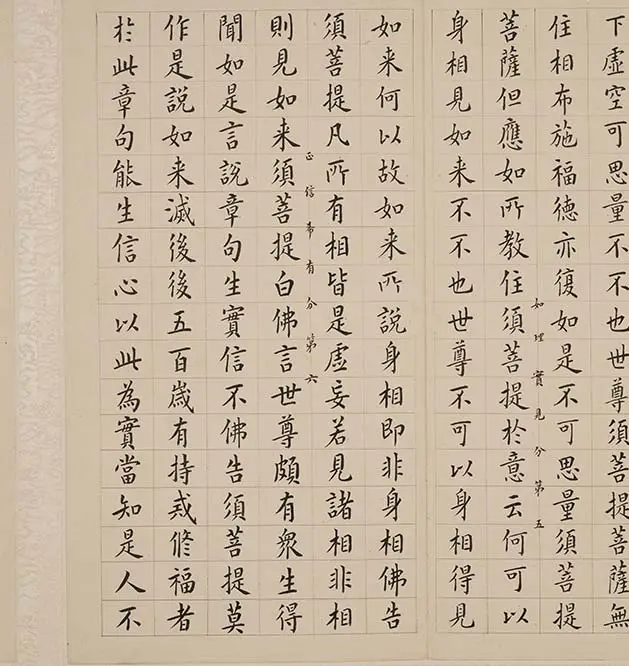 下虛空可思量不不也世尊須菩提菩薩無
住相布施福德亦復如是不可思量須菩提
如理實見分第五
菩薩但應如所教住須菩提於意云何可以
身相見如来不不也世尊不可以身相得見
如来何以故如来所說身相即非身相佛告
須菩提凡所有相皆是虛妄若見諸相非相
正信希有分第六
則見如来須菩提白佛言世尊頗有衆生得
聞如是言說章句生實信不佛告須菩提莫
作是說如来滅後後五百歲有持戒修福者
於此章句能生信心以此為實當知是人不